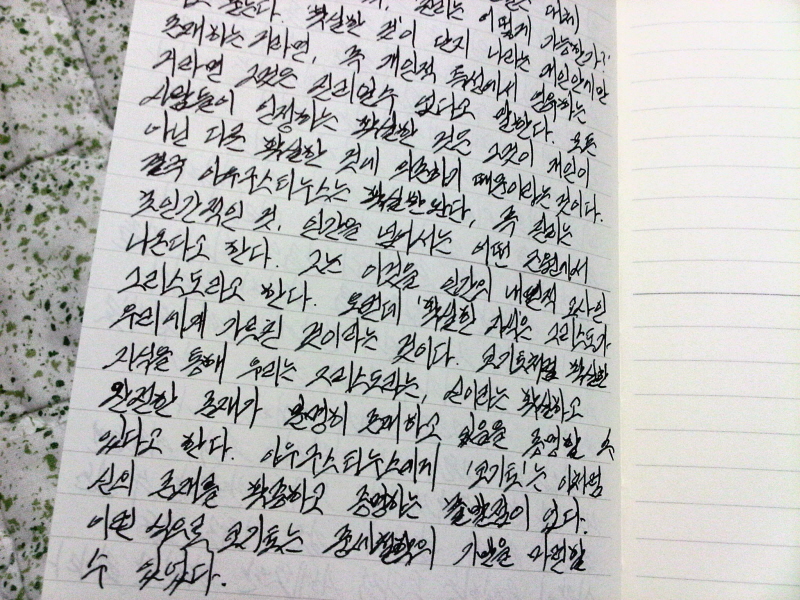 묻는다. '확실한 것'이 단지 나라는 개인안에만
존재하는 거라면, 즉 개인적 특성에서 연유하는
거라면 그것은 진리일수 없다고 말한다. 모든
사람들이 인정하는 확실한 것은 그것이 개인이
아닌 다른 확실한 것에 의존하기 때문이라는 것이다.
결국 아우구스티누스는 확실한 즉 진리는
초인간적인 것, 인간을 넘어서는 어떤 근원에서
나온다고 한다. 그는 이것을 인간의 내면적 교사인
그리스도라고 한다. 요컨데 '확실한 지식은 그리스도가
우리에게 가르친 것이라는 것이다. 코기토처럼 확실한
지식을 통해 우리는 그리스도라는, 신이라는 확실하고
완전한 존재가 분명히 존재하고 있음을 증명할 수
있다고 한다. 아우구스티누스에게 '코기토'는 이처럼
신의 존재를 확증하고 증명하는 출발점이 된다.
이런 식으로 코기토는 중세철학의 기반을 마련할
수 있었다.